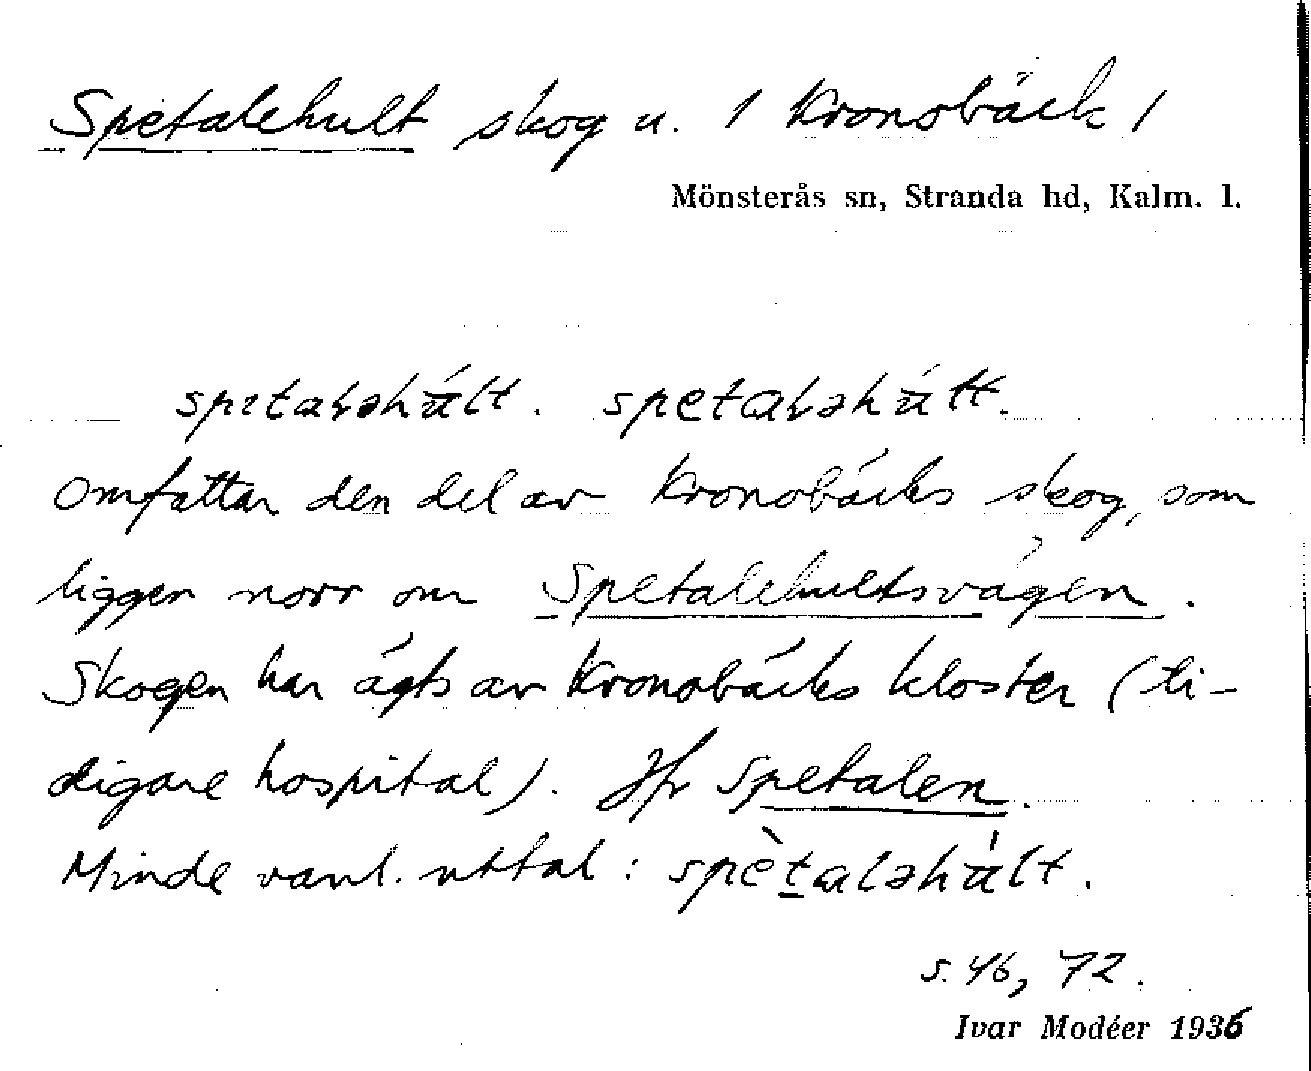 Spetalehult skog u. / Kronobäck /
Mönsterås sn, Stranda hd, Kalm. l.
Omfattar den del av Kronobäcks skog, som
ligger norr om Spetalehultsvägen.
Skogen har ägts av Kronobäcks kloster (ti-
digare hospital). Jfr Spetalen.
Mindre vanl. uttal:
s. 46, 72.
Ivar Modéer 1936